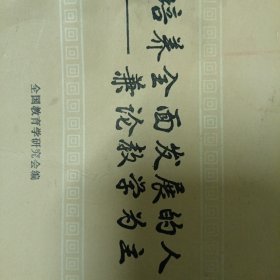 培养全面发展的人
——兼论教学为主
全国教育学研究会编